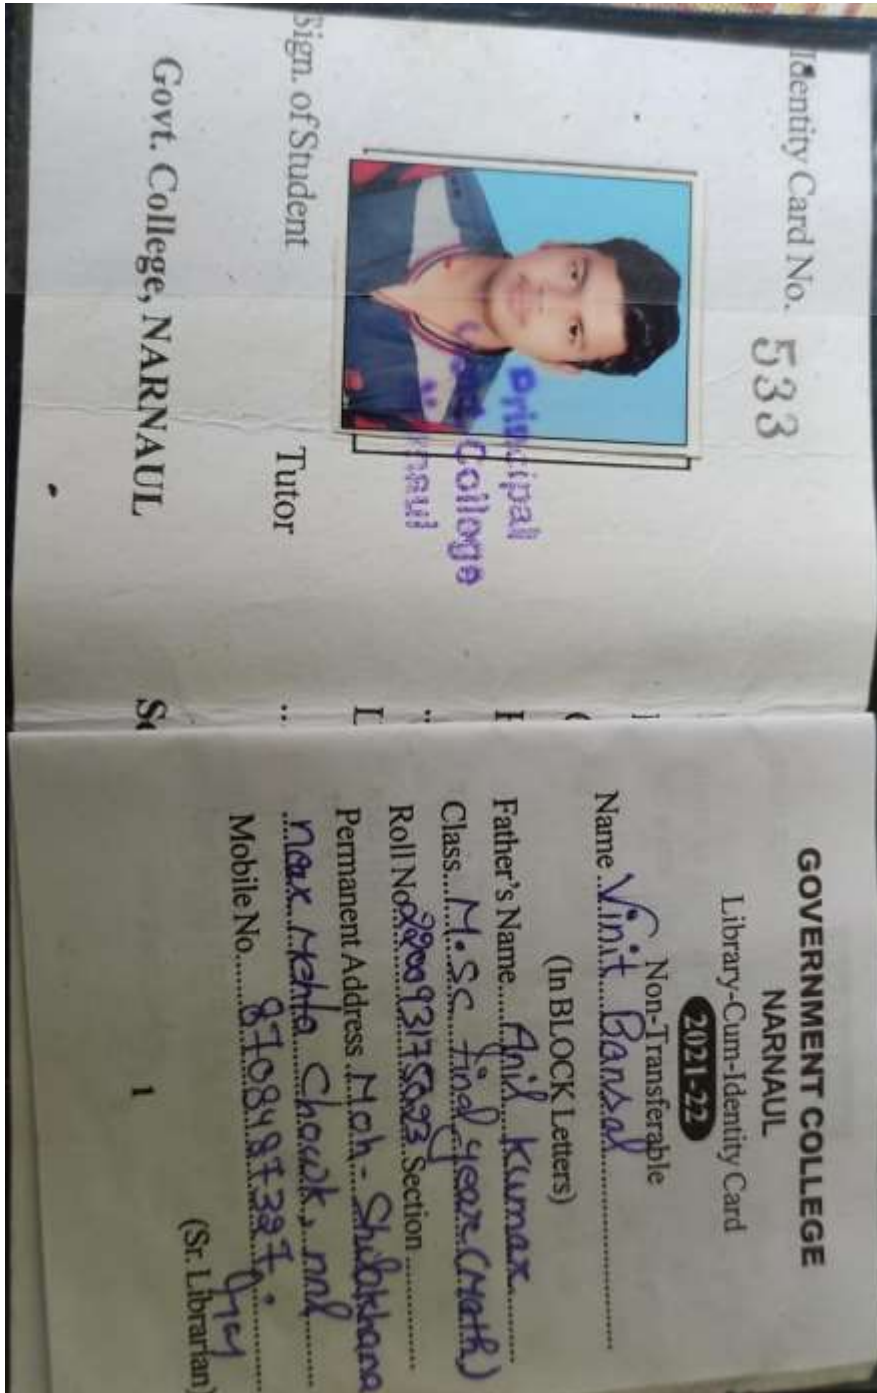 Identity Card No. 533
Principal
College
Sign. of Student
Tutor
Govt. College, NARNAUL
GOVERNMENT COLLEGE
NARNAUL
Library-Cum-Identity Card
2021-22
Non-Transferable
Name Vinit Bansal
(In BLOCK Letters)
Father's Name Anil Kumar
Class M.Sc final year (Math)
Roll No. Section
Permanent Address Moh-
Chowk, nnl
Mobile No. 8708487397.
(Sr. Librarian)
1